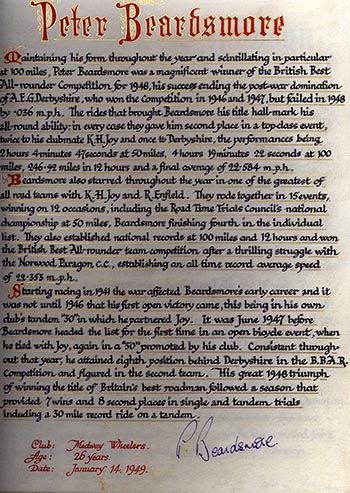 Peter Beardsmore
Maintaining his form throughout the year and scintillating in particular
at 100 miles, Peter Beardsmore was a magnificent winner of the British Best
All-rounder Competition for 1948, his success ending the post-war domination
of A.E.G. Derbyshire, who won the Competition in 1946 and 1947, but failed in 1948
by ·036 m.p.h. The rides that brought Beardsmore his title hall-mark his
all-round ability: in every case they gave him second place in a top-class event,
twice to his clubmate K.H. Joy and once to Derbyshire, the performances being
2 hours 4 minutes 47 seconds at 50 miles, 4 hours 19 minutes 22 seconds at 100
miles, 246·92 miles in 12 hours and a final average of 22·584 m.p.h.
Beardsmore also starred throughout the year in one of the greatest of
all road teams with K.H. Joy and R. Enfield. They rode together in 15 events,
winning on 12 occasions, including the Road Time Trials Council's national
championship at 50 miles, Beardsmore finishing fourth in the individual
list. They also established national records at 100 miles and 12 hours and won
the British Best All-rounder team competition after a thrilling struggle with
the Norwood Paragon C.C., establishing an all time record average speed
of 22·353 m.p.h.
Starting racing in 1941 the war affected Beardsmore's early career and it
was not until 1946 that his first open victory came, this being in his own
club's tandem "30" in which he partnered Joy. It was June 1947 before
Beardsmore headed the list for the first time in an open bicycle event, when
he tied with Joy, again in a "50" promoted by his club. Consistent through-
out that year, he attained eighth position behind Derbyshire in the B.B.A.R.
Competition and figured in the second team. His great 1948 triumph
of winning the title of Britain's best roadman followed a season that
provided 7 wins and 8 second places in single and tandem trials
including a 30 mile record ride on a tandem.
Club: Medway Wheelers.
Age: 26 years.
Date: January 14. 1949.
P. Beardsmore